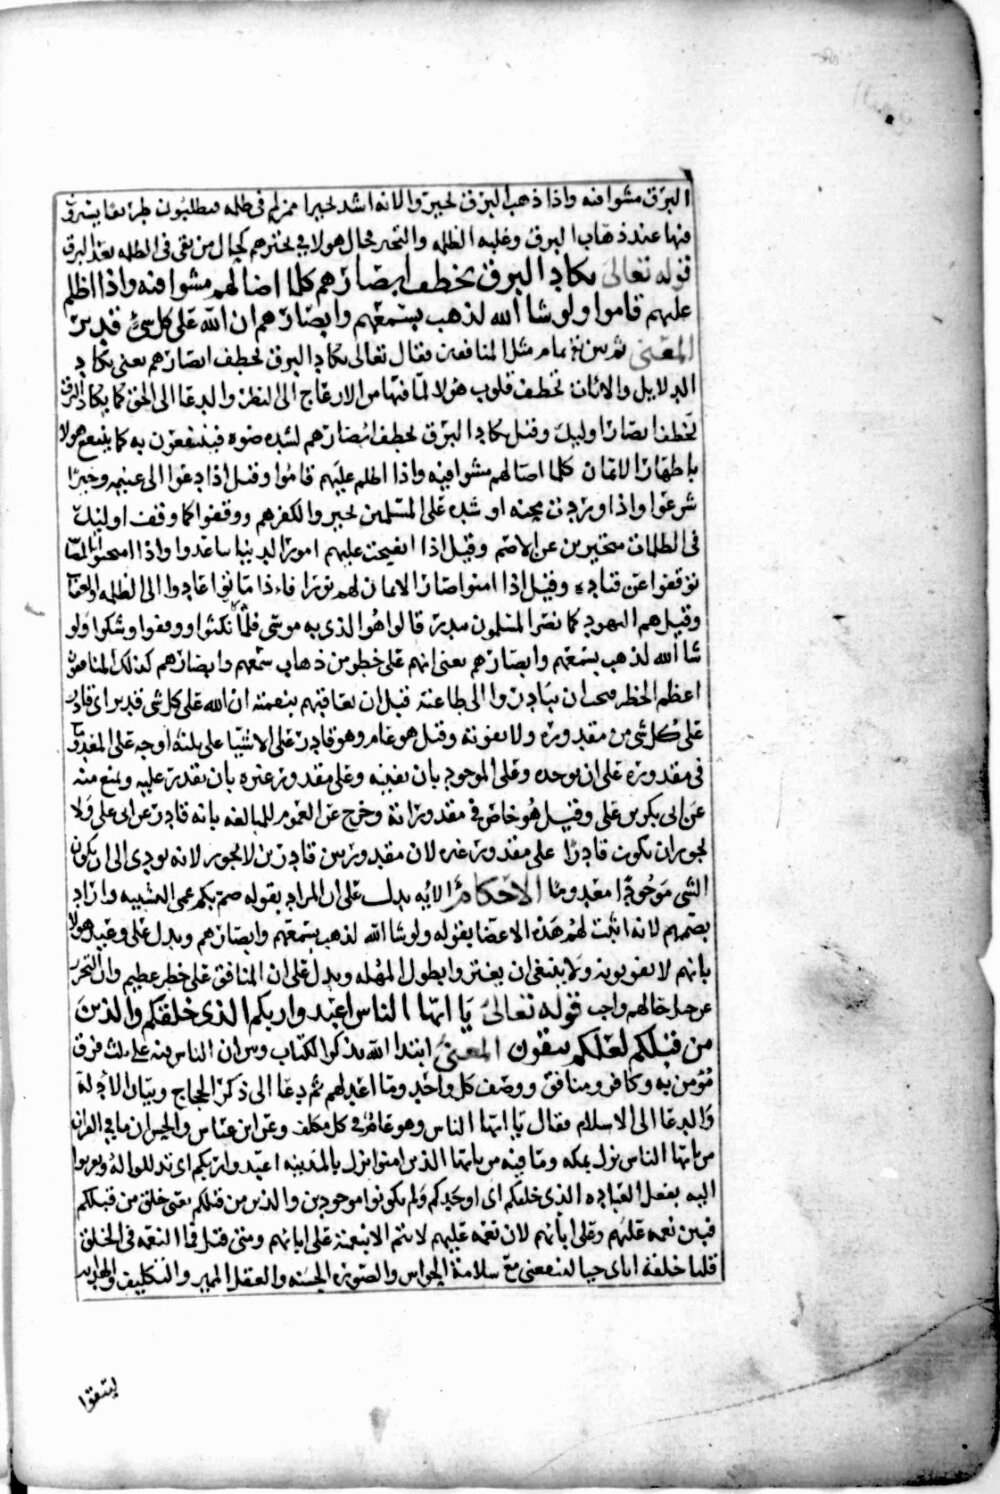 البرق مشوا فيه واذا ذهب البرق تحير والانه اشد تحيرا ممن لم في ظلمه فيطلبون طريقا ينصرف
فيها عند ذهاب البرق وغلبه الظلمه والتحير فحال هولا في تحيرهم كحال من بقى فى الظلمه بعد البرق
قوله تعالى يكاد البرق يخطف ابصارهم كلما اضا لهم مشوا فيه واذا اظلم
عليهم قاموا ولو شا الله لذهب بسمعهم وابصارهم ان الله على كل شئ قدير
المعنى ثم بين تمام مثل المنافقين فقال تعالى يكاد البرق يخطف ابصارهم يعنى يكاد
الدلايل والايات تخطف قلوب هولا لما فيها من الازعاج الى النظر والدعا الى الحق كما يكاد البرق
يخطف ابصار اوليك وقيل يكاد البرق يخطف ابصارهم لشده ضوه فينتفعون به كما ينتفع هولا
باظهار الايمان كلما اضا لهم مشوا فيه واذا اظلم عليهم قاموا وقيل اذا دعوا الى غنيمه وخير
شرعوا واذا وردت محنه او شده على المسلمين تحيروا لكفرهم ووقفوا كما وقف اوليك
فى الظلمات متحيرين عن الاصم وقيل اذا اتضحت عليهم امور الدنيا ساعدوا واذا امتحنوا
توقفوا عن قتاده وقيل اذا امنوا صار الايمان لهم نورا فاذا ماتوا عادوا الى الظلمه
وقيل هم اليهود كما نصر المسلمون ببدر قالوا هوا الذى به موسى فلما نكثوا ووقفوا وشكوا ولو
شا الله لذهب بسمعهم وابصارهم يعنى انهم على خطر من ذهاب سمعهم وابصارهم كذلك المنافقون
اعظم الخطر فيجب ان يبادروا الى طاعته قبل ان يعاقبهم بنعمته ان الله على كل شى قدير اى قادر
على كل شى من مقدوره ولا يفوته وقيل هو عام وهو قادر على الاشيا على ثلثه اوجه على المعدوم
فى مقدوره على ان يوجده وعلى الموجود بان يفنيه وعلى مقدور غيره بان يقدر عليه ويمنع منه
عن ابى بكر بن على وقيل هو خاص فى مقدوراته وخرج عن العموم للمبالغه بانه قادر عن ابى على ولا
يجوز ان يكون قادرا على مقدور غيره لان مقدور بين قادرين لا يجوز لانه يودى الى ان يكون
الشى موجودا معدوما الاحكام الايه يدل على ان المراد بقوله صم بكم عمى التشبيه واراد
بصممهم لانه اثبت لهم هذه الاعضا بقوله ولو شا الله لذهب بسمعهم وابصارهم ويدل على وعيد هولا
بانهم لا يفوتونه ولا ينبغى ان يغتروا بطول المهله ويدل على ان المنافق على خطر عظيم وان التحرز
عن مثل حالهم واجب قوله تعالى يا ايها الناس اعبدوا ربكم الذى خلقكم والذين
من قبلكم لعلكم تتقون المعنى ابتدا الله بذكر الكتاب وبين ان الناس فيه على ثلث فرق
مومن به وكافر ومنافق ووصف كل واحد وما اعد لهم ثم دعا الى ذكر الحجاج وبيان الادله
والدعا الى الاسلام فقال يا ايها الناس وهو عام فى كل مكلف وعن ابن عباس والحسن ان ما فى القران
من يا ايها الناس نزل بمكه وما فيه من يا ايها الذين امنوا نزل بالمدينه اعبدوا ربكم اى تذللوا له وتقربوا
اليه بفعل العباده الذى خلقكم اى اوجدكم ولم تكونوا موجودين والذين من قبلكم يعنى خلق من قبلكم
فبين نعمه عليهم وعلى ابائهم لان نعمه عليهم لا يتم الا بنعمته على ابائهم ومتى قيل فما النعمه فى الخلق
قلنا خلقه اياى حيا لينفعنى مع سلامة الحواس والصوره الحسنه والعقل المميز والتكليف والهدايه
ليتقوا